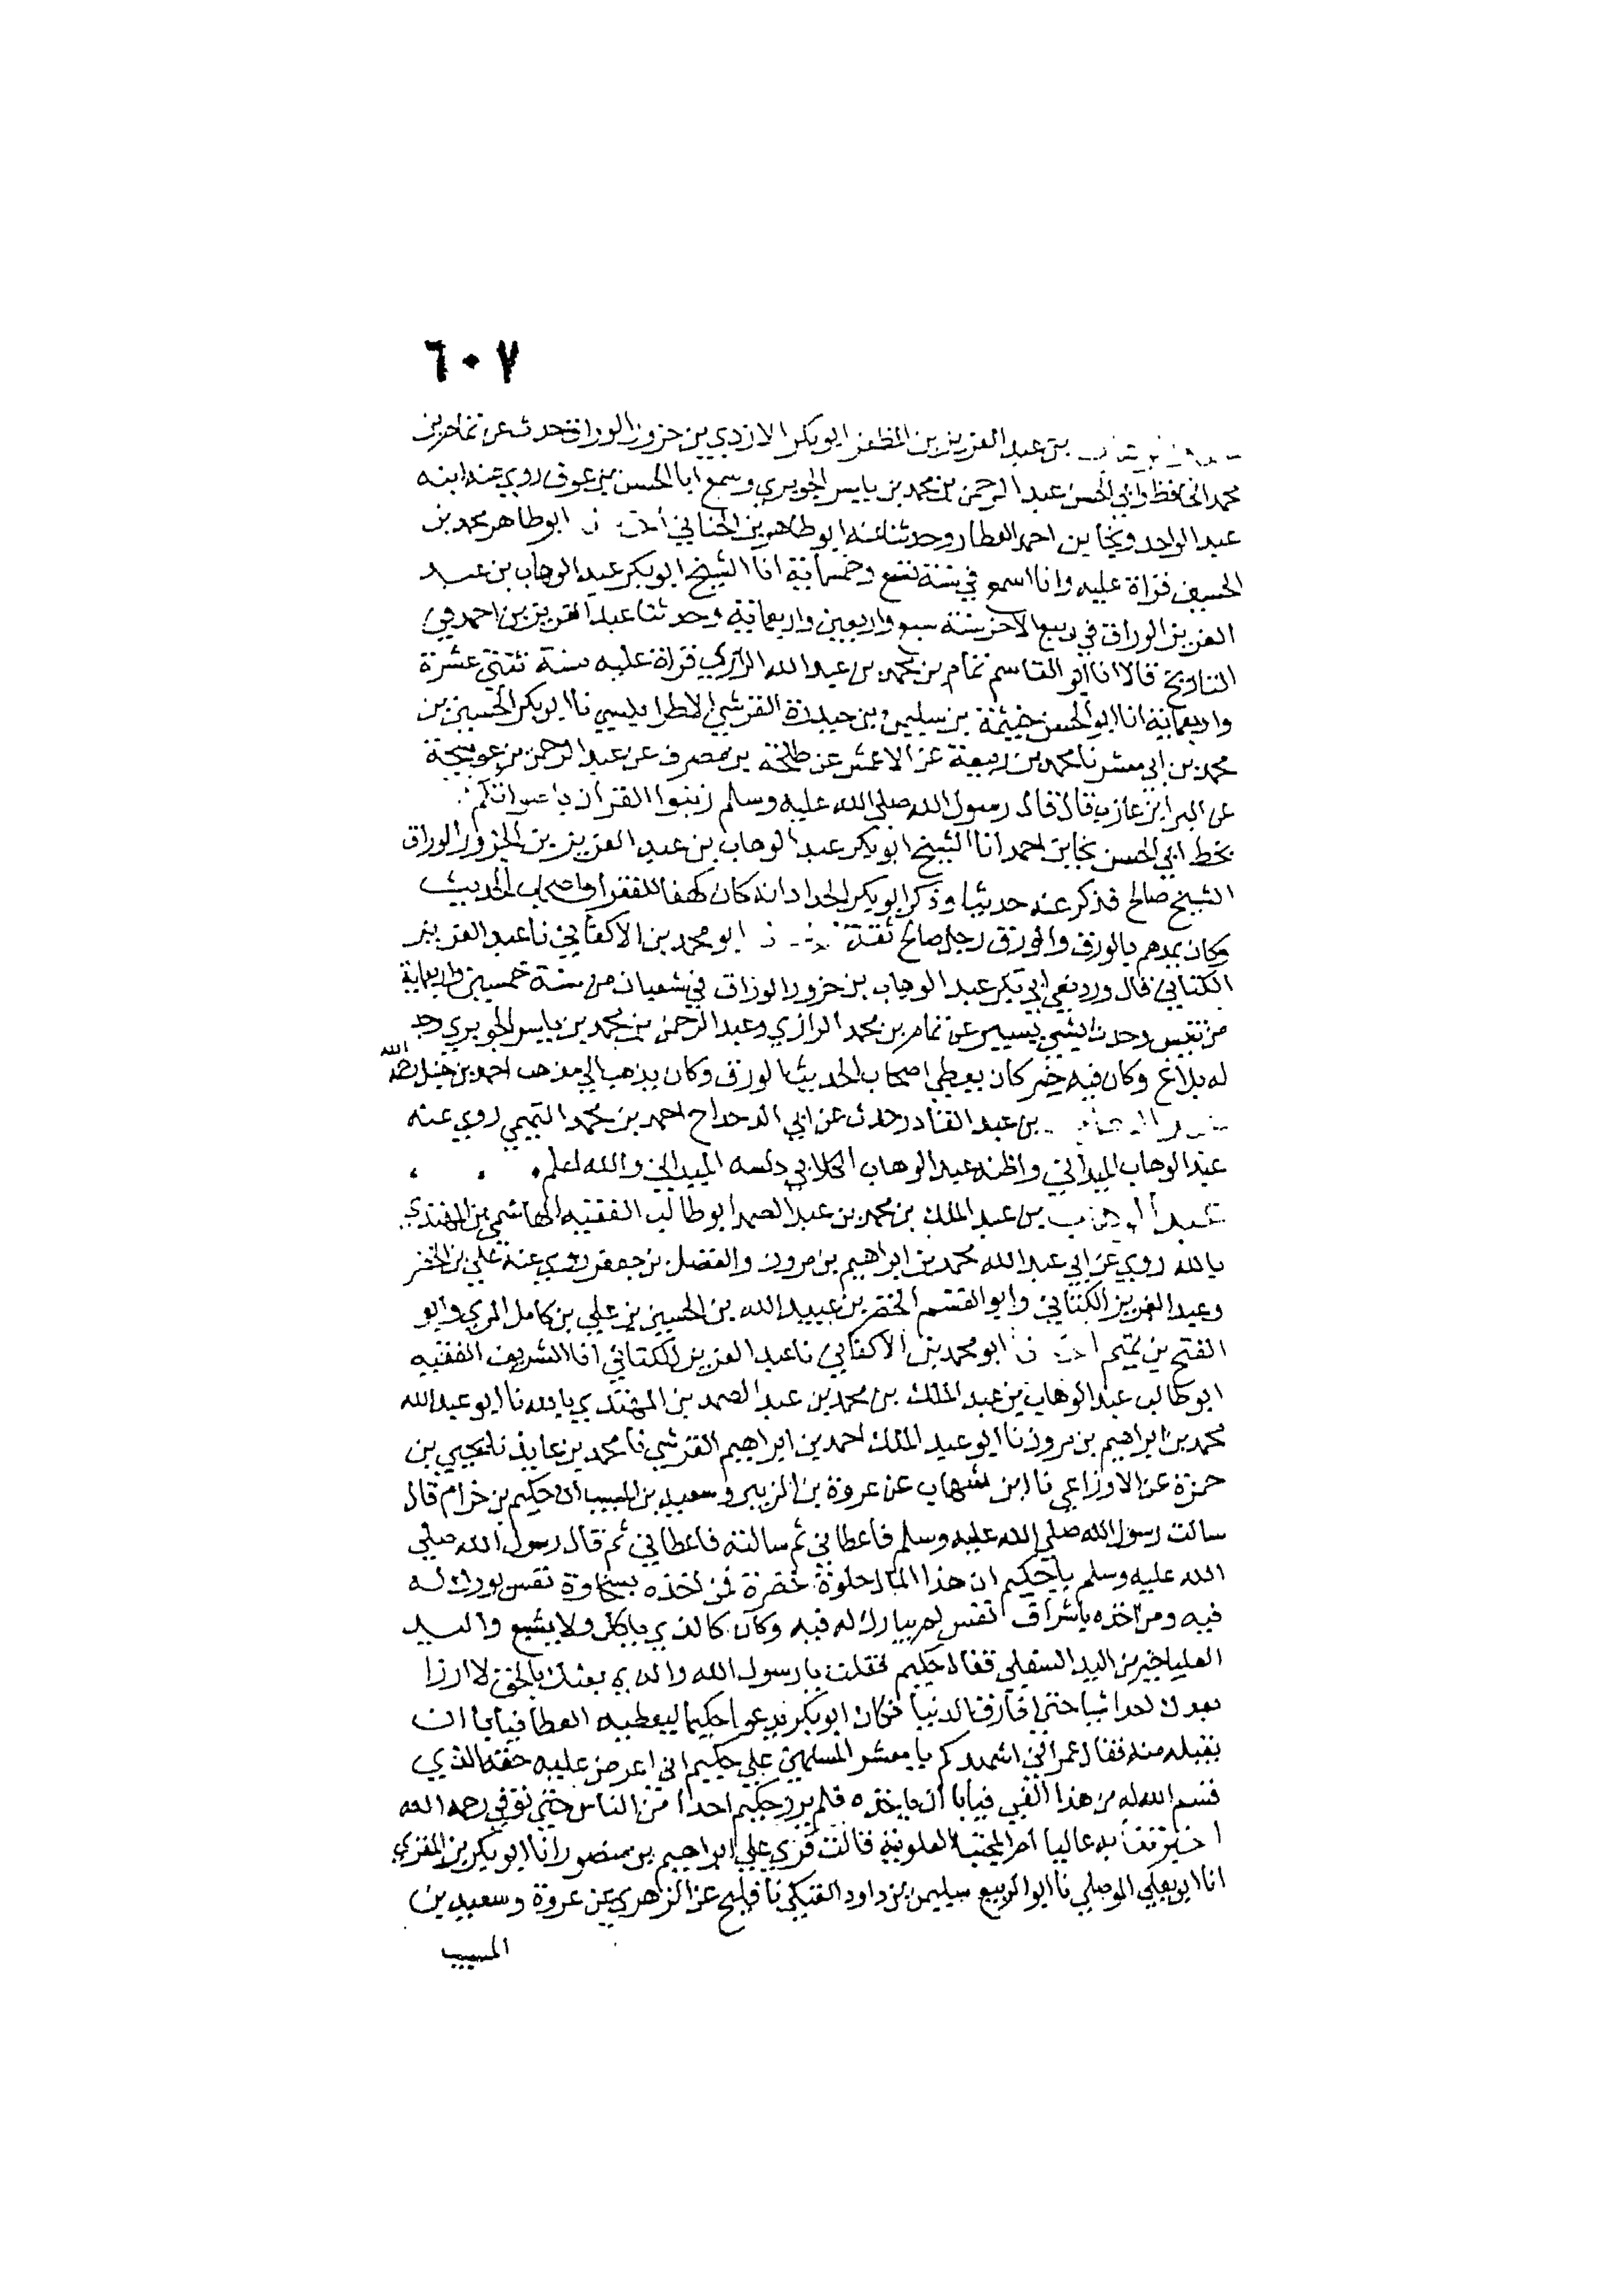 ٦٠٧
بن عبد العزيز بن المظفر ابو بكر الازدي بن حزور الوراق حدث عن تمام بن
محمد الحافظ وابي الحسن عبد الرحمن بن محمد بن ياسر الجوبري وسمع ابا الحسن بن عوف روي عنه ابنه
عبد الواحد ونجا بن احمد العطار وحدثنا عنه ابو طاهر بن الحنائي ابو طاهر محمد بن
الحسين قراة عليه وانا اسمع في سنة تسع وخمسماية انا الشيخ ابو بكر عبد الوهاب بن عبد
العزيز الوراق في ربيع الاخر سنة سبع واربعين واربعماية وحدثنا عبد العزيز بن احمد في
التاريخ قالا انا ابو القاسم تمام بن محمد بن عبد الله الرازي قراة عليه سنة ثنتي عشرة
واربعماية انا ابو الحسن خيثمة بن سليمن بن حيدرة القرشي الاطرابلسي نا ابو بكر الحسين بن
محمد بن ابي معشر نا محمد بن ربيعة عن الاعمش عن طلحة بن مصرف عن عبد الرحمن بن عوسجة
عن البرا بن عازب قال قال رسول الله صلي الله عليه وسلم زينوا القرآن باصواتكم
بخط ابي الحسن نجا بن احمد انا الشيخ ابو بكر عبد الوهاب بن عبد العزيز بن الحزور الوراق
الشيخ صالح فذكر عنه حديثا وذكر ابو بكر الحداد انه كان كهفا للفقرا واصحاب الحديث
وكان يمدهم بالورق والورق رجل صالح ثقة ابو محمد بن الاكفاني نا عبد العزيز
الكتاني قال ورد نعي ابي بكر عبد الوهاب بن حزور الوراق في شعبان من سنة خمسين واربعماية
من تنيس وحدث بشي يسير عن تمام بن محمد الرازي وعبد الرحمن بن محمد بن ياسر الجوبري وجد
له بلاغ وكان فيه خير كان يعطي اصحاب الحديث الورق وكان يذهب الي مذهب احمد بن حنبل رحمه الله
بن عبد القادر حدث عن ابي الدحداح احمد بن محمد التميمي روي عنه
عبد الوهاب الميداني واظنه عبد الوهاب الكلابي دلسه الميداني والله اعلم
عبد الوهاب بن عبد الملك بن محمد بن عبد الصمد ابو طالب الفقيه الهاشمي بن المهتدي
بالله روي عن ابي عبد الله محمد بن ابراهيم بن مروان والفضل بن جعفر روي عنه علي بن الخضر
وعبد العزيز الكتاني وابو القسم الخضر بن عبيد الله بن الحسين بن علي بن كامل المري وابو
الفتح بن تميم ابو محمد بن الاكفاني نا عبد العزيز الكتاني انا الشريف الفقيه
ابو طالب عبد الوهاب بن عبد الملك بن محمد بن عبد الصمد بن المهتدي بالله نا ابو عبد الله
محمد بن ابراهيم بن مروان نا ابو عبد الملك احمد بن ابراهيم القرشي نا محمد بن عايذ نا يحيي بن
حمزة عن الاوزاعي نا ابن شهاب عن عروة بن الزبير وسعيد بن المسيب ان حكيم بن حزام قال
سالت رسول الله صلي الله عليه وسلم فاعطاني ثم سالته فاعطاني ثم قال رسول الله صلي
الله عليه وسلم يا حكيم ان هذا المال حلوة خضرة فمن اخذه بسخاوة نفس بورك له
فيه ومن اخذه باشراف نفس لم يبارك له فيه وكان كالذي ياكل ولا يشبع واليد
العليا خير من اليد السفلي فقال حكيم فقلت يا رسول الله والذي بعثك بالحق لا ارزا
بعدك احدا شيا حتي افارق الدنيا فكان ابو بكر يدعو حكيما ليعطيه العطا فيابا ان
يقبله منه فقال عمر اني اشهدكم يا معشر المسلمين علي حكيم اني اعرض عليه حقه الذي
قسم الله له من هذا الفي فيابا ان ياخذه فلم يرز حكيم احدا من الناس حتي توفي رحمه الله
اخبرتنا به عاليا ام المجتبا العلوية قالت قري علي ابراهيم بن منصور انا ابو بكر بن المقري
انا ابو يعلي الموصلي نا ابو الربيع سليمن بن داود العتكي نا فليح عن الزهري عن عروة وسعيد بن
المسيب